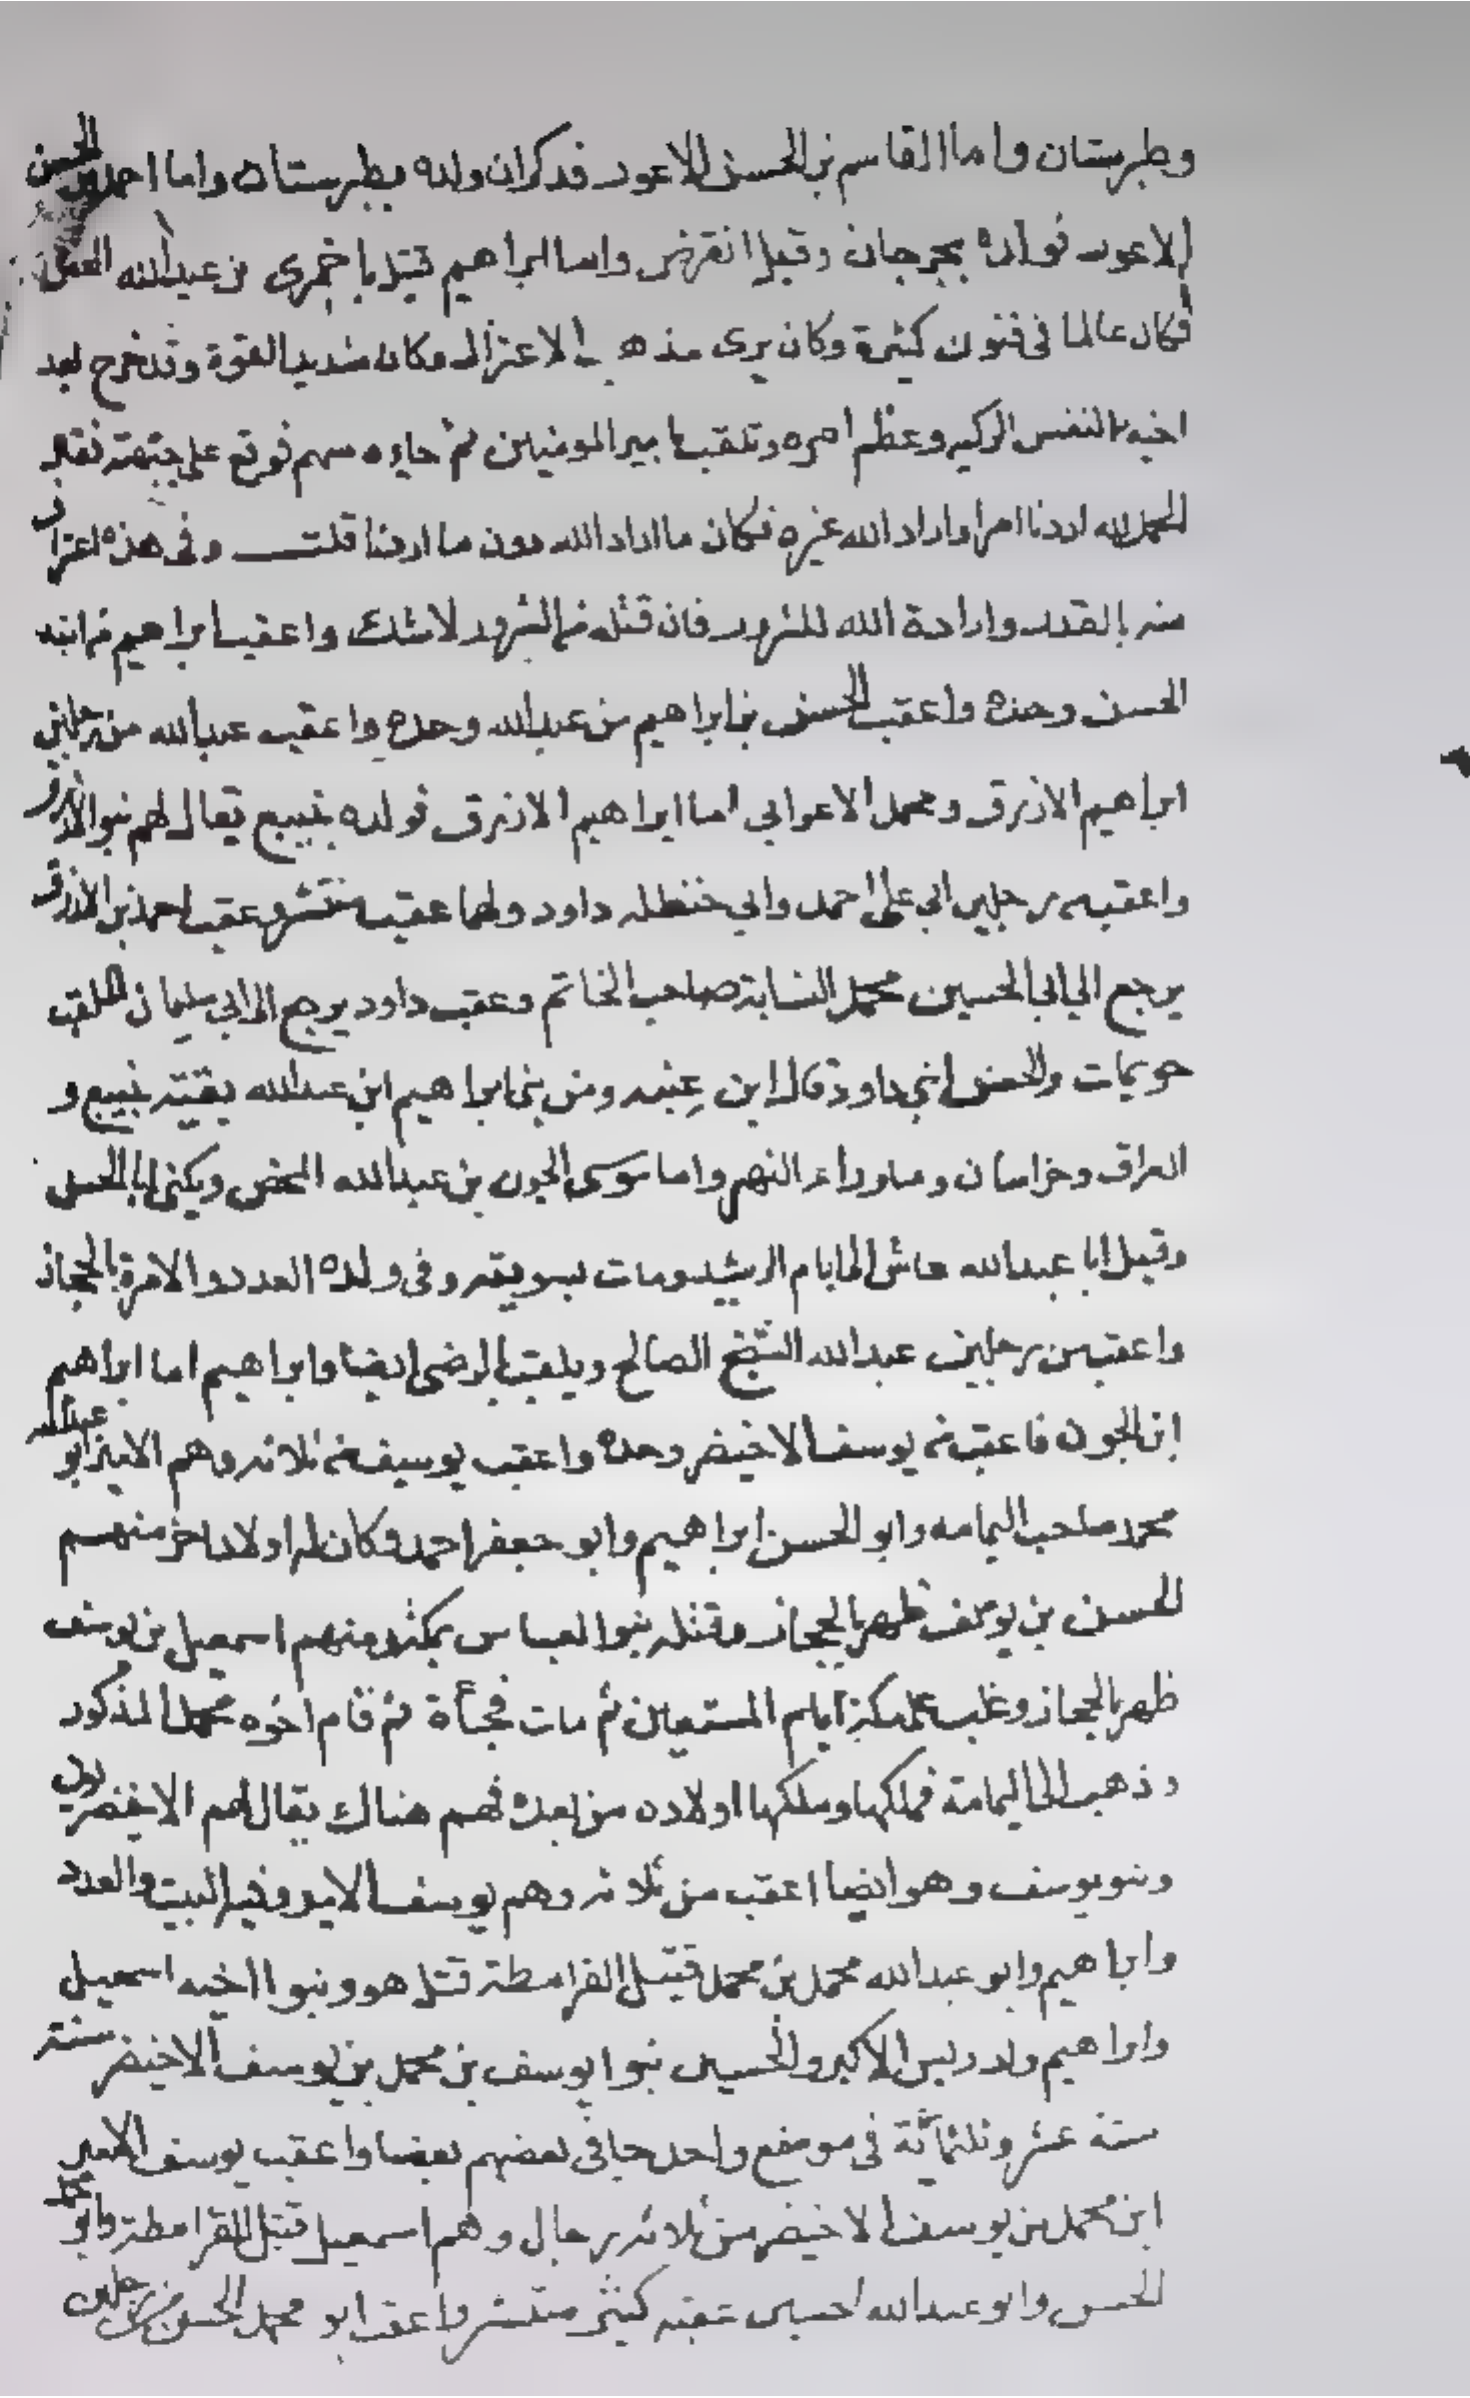 وطبرستان واما القاسم بن الحسن الاعور فذكران ولده بطبرستان واما احمد بن الحسن
الاعور فولده بجرجان وقيل انقرض واما ابراهيم قتيل باخمرى بن عبدالله المحض
فكان عالما فى فنون كثيرة وكان يرى مذهب الاعتزال وكان شديد القوة وقد خرج بعد
اخيه النفس الزكيه وعظم امره وتلقب بامير المومنين ثم جاءه سهم فوقع على جبهته فقال
الحمد لله اردنا امرا واراد الله غيره فكان ما اراد الله دون ما اردنا قلت وفى هذه اعتراف
منه بالقدر وارادة الله للشرور فان قتله من الشرور لاشك واعقب ابراهيم من ابنه
الحسن وحده واعقب الحسن بن ابراهيم من عبدالله وحده واعقب عبدالله من رجلين
ابراهيم الازرق ومحمد الاعرابي اما ابراهيم الازرق فولده بينبع يقال لهم بنوا الازرق
واعقب من رجلين ابي على احمد وابي حنظله داود ولهما عقب منتشر وعقب احمد بن الازرق
يرجع الي ابي الحسين محمد النسابة صاحب الخاتم وعقب داود يرجع الى ابي سليمان الملقب
حويمات والحسن ابني داود قال ابن عنبه ومن بنى ابراهيم ابن عبدالله بقيته بينبع و
العراق وخراسان وماوراء النهر واما موسى الجون بن عبدالله المحض ويكنى ابا الحسن
وقيل ابا عبدالله عاش الى ايام الرشيد ومات بسويقه وفى ولده العدد والامرة بالحجاز
واعقب من رجلين عبدالله الشيخ الصالح ويلقب بالرضى ايضا وابراهيم اما ابراهيم
ابن الجون فاعقب من يوسف الاخيضر وحده واعقب يوسف من ثلاثه وهم الامير ابو عبدالله
محمد صاحب اليمامه وابو الحسن ابراهيم وابو جعفر احمد وكان له اولاد اخر منهم
الحسن بن يوسف ظهر بالحجاز وقتله بنوا العباس بمكة ومنهم اسمعيل بن يوسف
ظهر بالحجاز وغلب على مكة ايام المستعين ثم مات فجأة ثم قام اخوه محمد المذكور
وذهب الى اليمامة فملكها وملكها اولاده من بعده فهم هناك يقال لهم الاخيضريون
وبنو يوسف وهو ايضا اعقب من ثلاثه وهم يوسف الامير وفيه البيت والعدد
وابراهيم وابو عبدالله محمد بن محمد قتيل القرامطة قتل هو وبنوا اخيه اسمعيل
وابراهيم وادريس الاكبر والحسين بنوا يوسف بن محمد بن يوسف الاخيضر سنة
ستة عشر وثلثمائة فى موضع واحد حافى بعضهم بعضا واعقب يوسف الامير
ابن محمد بن يوسف الاخيضر من ثلاثه رجال وهم اسمعيل قتيل القرامطة وابو محمد
الحسن وابو عبدالله احسين عقبه كثير منتشر واعقب ابو محمد الحسن من رجلين